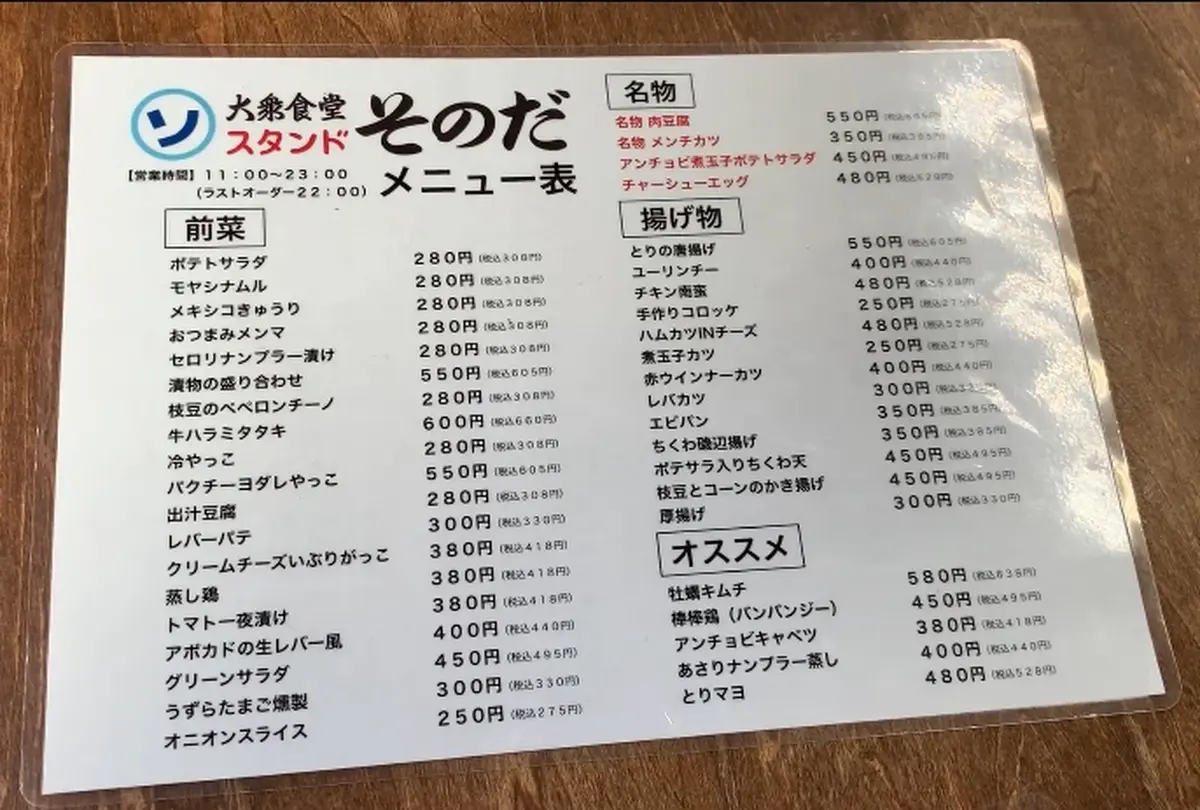 ソ 大衆食堂 スタンド そのだ
メニュー表
【営業時間】11:00〜23:00
(ラストオーダー22:00)
前菜
ポテトサラダ 280円 (税込308円)
モヤシナムル 280円 (税込308円)
メキシコきゅうり 280円 (税込308円)
おつまみメンマ 280円 (税込308円)
セロリナンプラー漬け 280円 (税込308円)
漬物の盛り合わせ 550円 (税込605円)
枝豆のペペロンチーノ 280円 (税込308円)
牛ハラミタタキ 600円 (税込660円)
冷やっこ 280円 (税込308円)
パクチーヨダレやっこ 550円 (税込605円)
出汁豆腐 280円 (税込308円)
レバーパテ 300円 (税込330円)
クリームチーズいぶりがっこ 380円 (税込418円)
蒸し鶏 380円 (税込418円)
トマト一夜漬け 380円 (税込418円)
アボカドの生レバー風 400円 (税込440円)
グリーンサラダ 450円 (税込495円)
うずらたまご燻製 300円 (税込330円)
オニオンスライス 250円 (税込275円)
名物
名物 肉豆腐 550円 (税込605円)
名物 メンチカツ 350円 (税込385円)
アンチョビ煮玉子ポテトサラダ 450円 (税込495円)
チャーシューエッグ 480円 (税込528円)
揚げ物
とりの唐揚げ 550円 (税込605円)
ユーリンチー 400円 (税込440円)
チキン南蛮 480円 (税込528円)
手作りコロッケ 250円 (税込275円)
ハムカツINチーズ 480円 (税込528円)
煮玉子カツ 250円 (税込275円)
赤ウインナーカツ 400円 (税込440円)
レバカツ 300円 (税込330円)
エビパン 350円 (税込385円)
ちくわ磯辺揚げ 350円 (税込385円)
ポテサラ入りちくわ天 450円 (税込495円)
枝豆とコーンのかき揚げ 450円 (税込495円)
厚揚げ 300円 (税込330円)
オススメ
牡蠣キムチ 580円 (税込638円)
棒棒鶏（バンバンジー） 450円 (税込495円)
アンチョビキャベツ 380円 (税込418円)
あさりナンプラー蒸し 400円 (税込440円)
とりマヨ 480円 (税込528円)